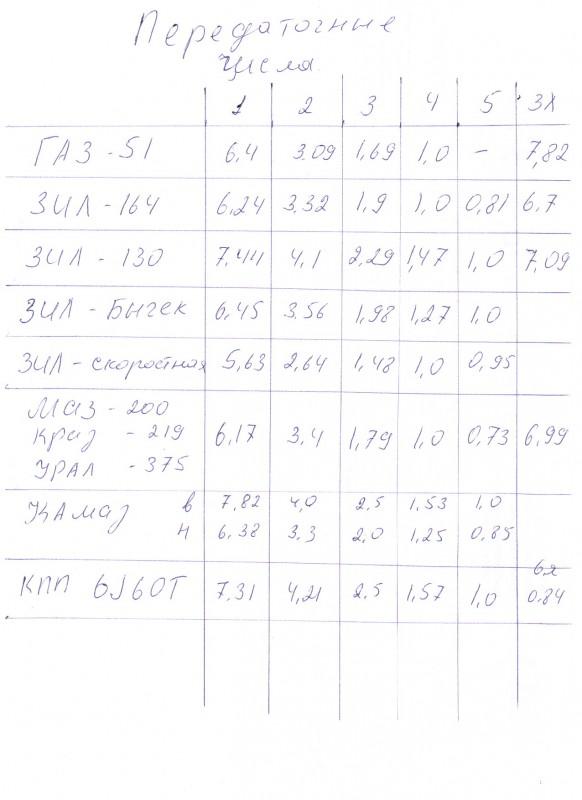 Передаточные
числа
1 2 3 4 5 3X
ГАЗ-51 6,4 3.09 1,69 1,0 - 7,82
ЗИЛ-164 6,24 3,32 1,9 1,0 0,81 6,7
ЗИЛ-130 7,44 4,1 2,29 1,47 1,0 7,09
ЗИЛ-Бычек 6,45 3.56 1,98 1,27 1,0
ЗИЛ-скоростная 5,63 2,64 1,48 1,0 0,95
МАЗ-200
Краз-219 6,17 3,4 1,79 1,0 0,73 6,99
УРАЛ-375
КАМАЗ в 7,82 4,0 2,5 1,53 1,0
н 6,38 3,3 2,0 1,25 0,85
6я
КПП 6J60T 7,31 4,21 2,5 1,57 1,0 0,84